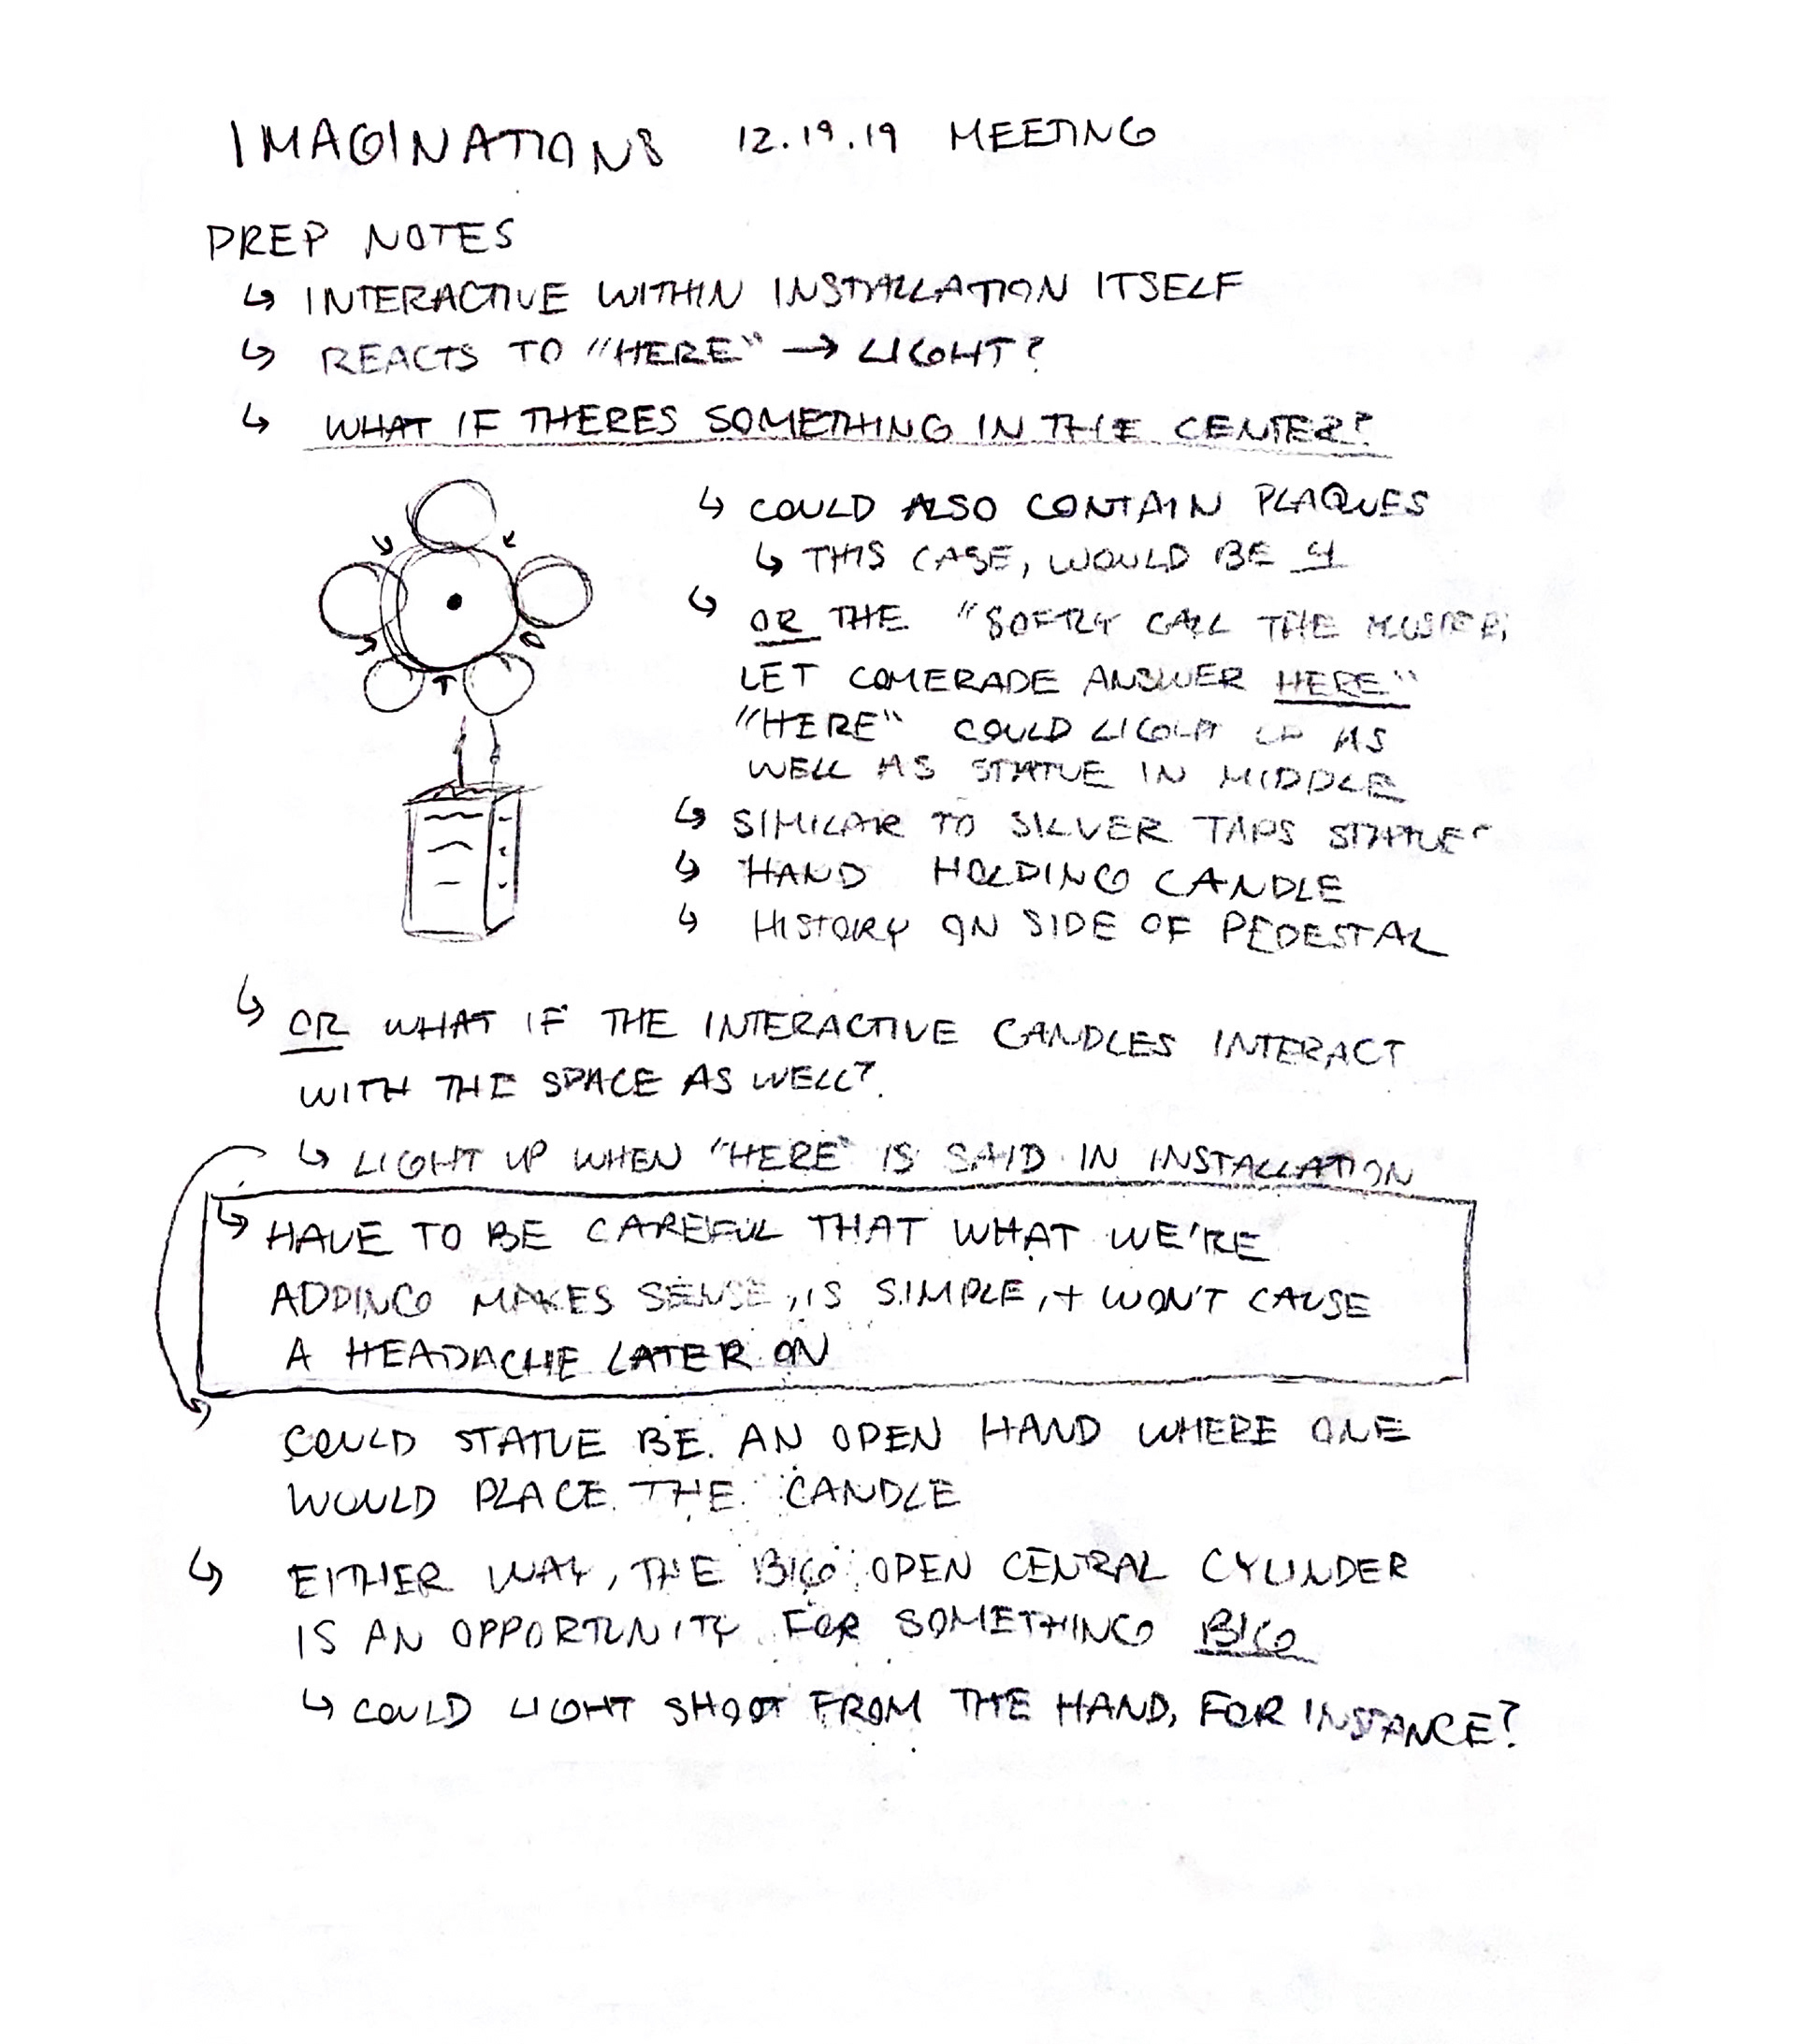 IMAGINATIONS 12.19.19 MEETING
PREP NOTES
↳ INTERACTIVE WITHIN INSTALLATION ITSELF
↳ REACTS TO "HERE" → LIGHT?
↳ WHAT IF THERES SOMETHING IN THE CENTER?
↳ COULD ALSO CONTAIN PLAQUES
↳ THIS CASE, WOULD BE 4
↳ OR THE "SOFTLY CALL THE MUSTER,
LET COMERADE ANSWER HERE"
"HERE" COULD LIGHT UP AS
WELL AS STATUE IN MIDDLE
↳ SIMILAR TO SILVER TAPS STATUE
↳ HAND HOLDING CANDLE
↳ HISTORY ON SIDE OF PEDESTAL
↳ OR WHAT IF THE INTERACTIVE CANDLES INTERACT
WITH THE SPACE AS WELL?
↳ LIGHT UP WHEN "HERE" IS SAID IN INSTALLATION
↳ HAVE TO BE CAREFUL THAT WHAT WE'RE
ADDING MAKES SENSE, IS SIMPLE, + WON'T CAUSE
A HEADACHE LATER ON
COULD STATUE BE AN OPEN HAND WHERE ONE
WOULD PLACE THE CANDLE
↳ EITHER WAY, THE BIG OPEN CENTRAL CYLINDER
IS AN OPPORTUNITY FOR SOMETHING BIG
↳ COULD LIGHT SHOOT FROM THE HAND, FOR INSTANCE?